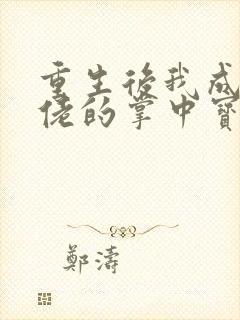 重生後我成
佬的掌中寶
鄭濤